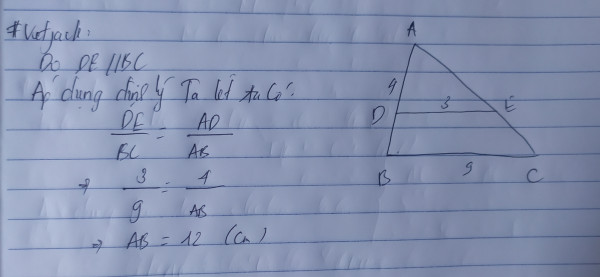 Do DE // BC
Áp dụng định lý Ta lét ta có:
DE/BC = AD/AB
⇒ 3/9 = 4/AB
⇒ AB = 12 (cm)
A
4
D 3 E
B 9 C